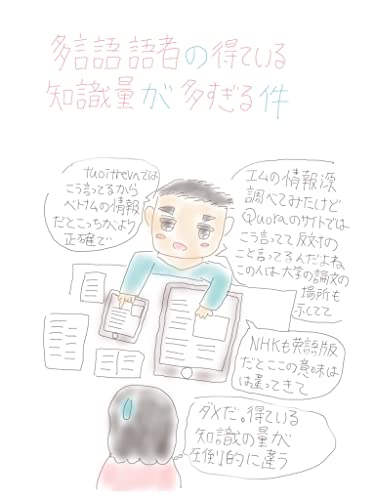 多言語話者の得ている
知識量が多すぎる件
tuoitrevnでは
こう言ってるから
ベトナムの情報
だとこっちがより
正確で
エムの情報源
調べてみたけど
Quoraのサイトでは
こう言ってて反対の
こと言ってるんだよね
この人は大学の論文の
場所も
示してて
NHKも英語版
だとここの意味は
は違ってきて
ダメだ。得ている
知識の量が
圧倒的に違う